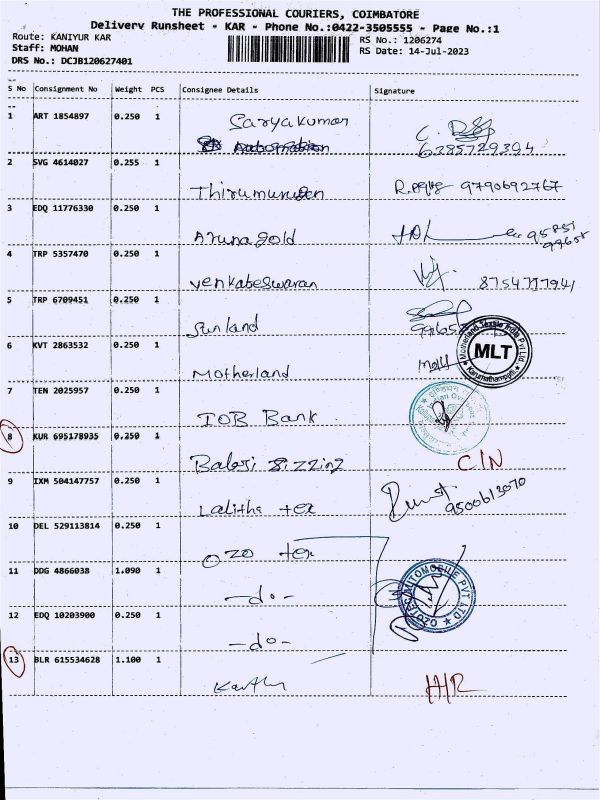 THE PROFESSIONAL COURIERS, COIMBATORE
Delivery Runsheet - KAR - Phone No.:0422-3505555 - Page No.:1
Route: KANIYUR KAR RS No.: 1206274
Staff: MOHAN RS Date: 14-Jul-2023
DRS No.: DCJB120627401
S No Consignment No Weight PCS Consignee Details Signature
1 ART 1854897 0.250 1 Saryakumar
6385729394
2 SVG 4614027 0.255 1
Thirumurugan 9790692767
3 EDQ 11776330 0.250 1
Aruna gold
4 TRP 5357470 0.250 1
Venkabeswaran
5 TRP 6709451 0.250 1
Sunland
6 KVT 2863532 0.250 1
Motherland MLT
7 TEN 2025957 0.250 1
IOB Bank
8 KUR 695178935 0.250 1
Balaji Sizzing C/N
9 IXM 504147757 0.250 1
Lalitha tex 9500613070
10 DEL 529113814 0.250 1
OZO tex
11 DDG 4866038 1.090 1
-do-
OZOTEC AUTOMOBILE PVT LTD
12 EDQ 10203900 0.250 1
-do-
13 BLR 615534628 1.100 1
H/R